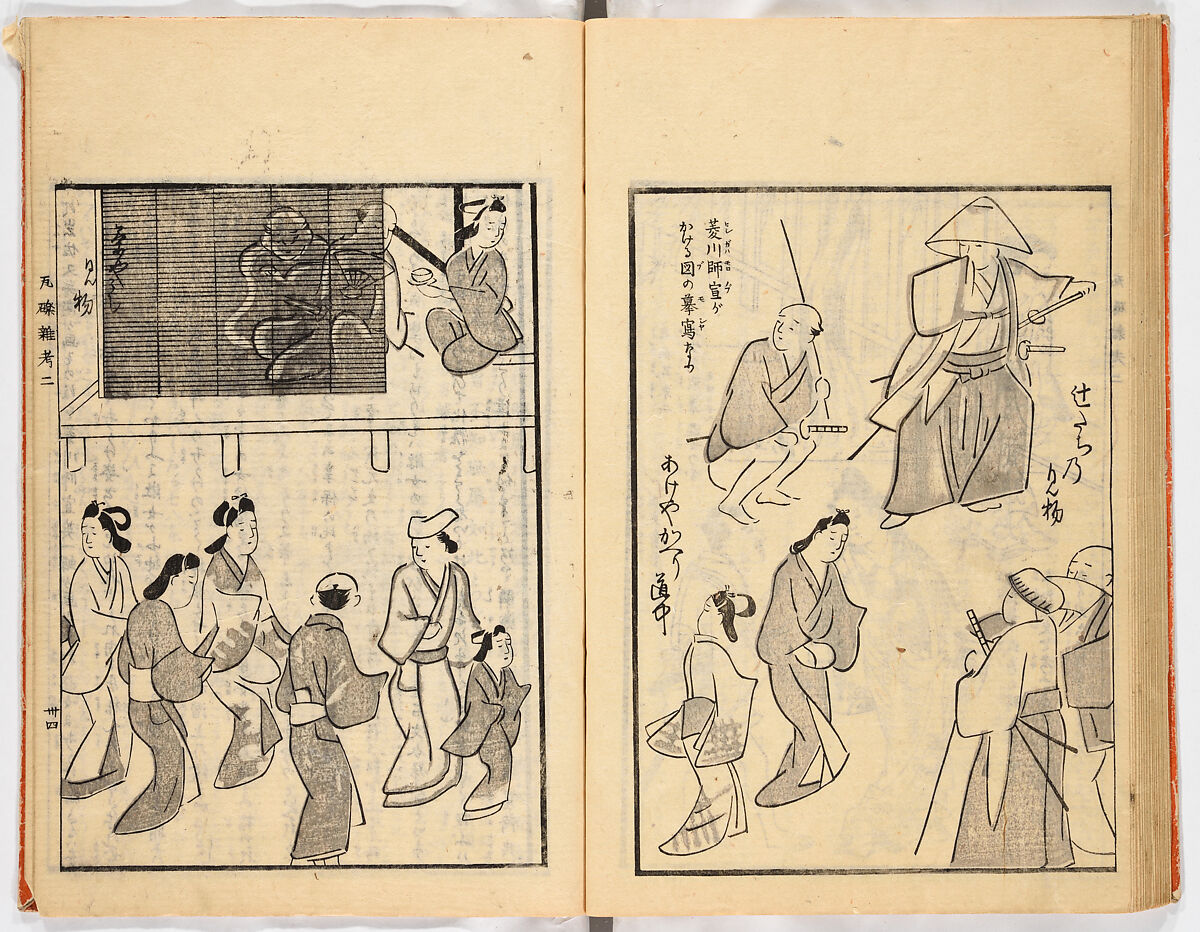 辻たち乃
けん物
菱川師宣ガ
かける図の摹寫なり
あけやかへり
道中
けん物
瓦礫雜考二
卅四